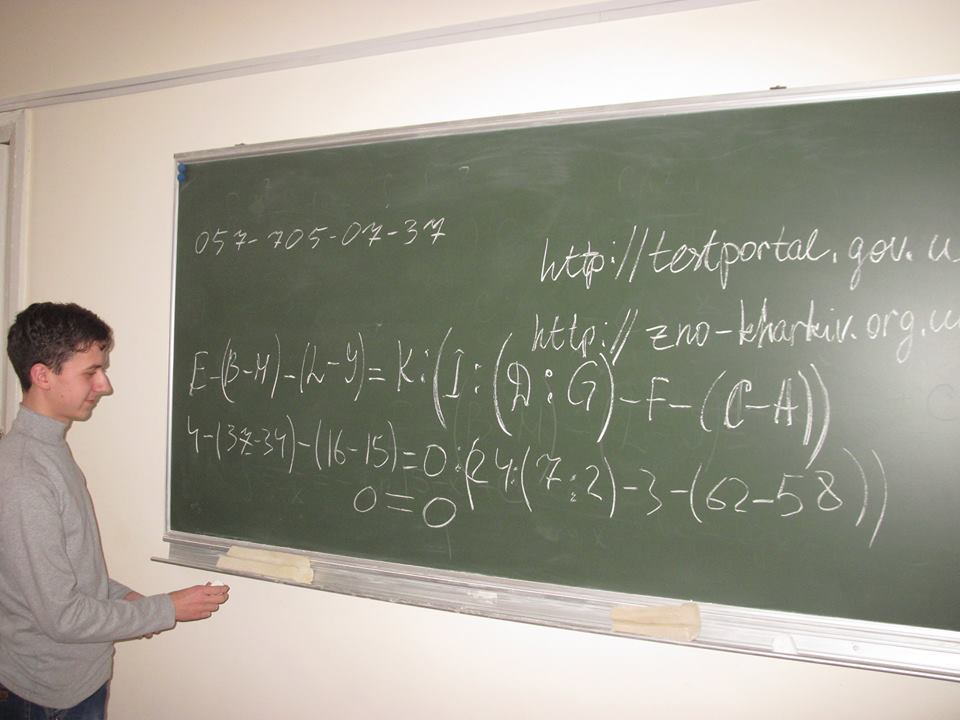 057-705-07-37
http://testportal.gov.u
http://zno-kharkiv.org.u
E-(B-H)-(L-Y)=K:(I:(D:G)-F-(C-A))
4-(37-34)-(16-15)=0:(24:(7:2)-3-(62-58))
0=0